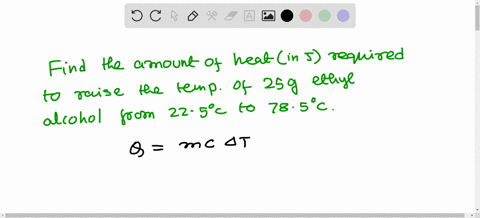 Find the amount of heat (in J) required
to raise the temp. of 25g ethyl
alcohol from 22.5°c to 78.5°c.
Q = mc ΔT